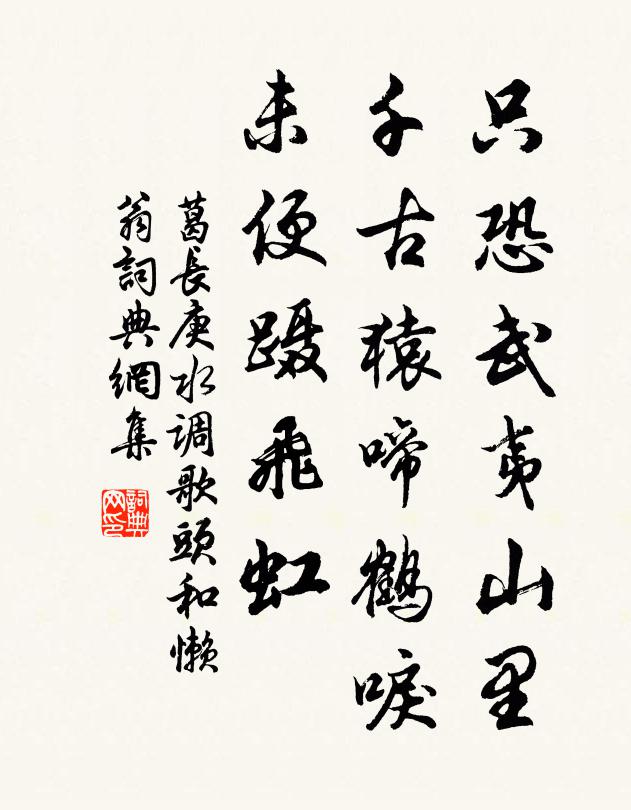 只恐武夷山里
千古猿啼鶴唳
未便躡飛虹
葛長庚水调歌頭和懶
翁詞典網集
詞典網印